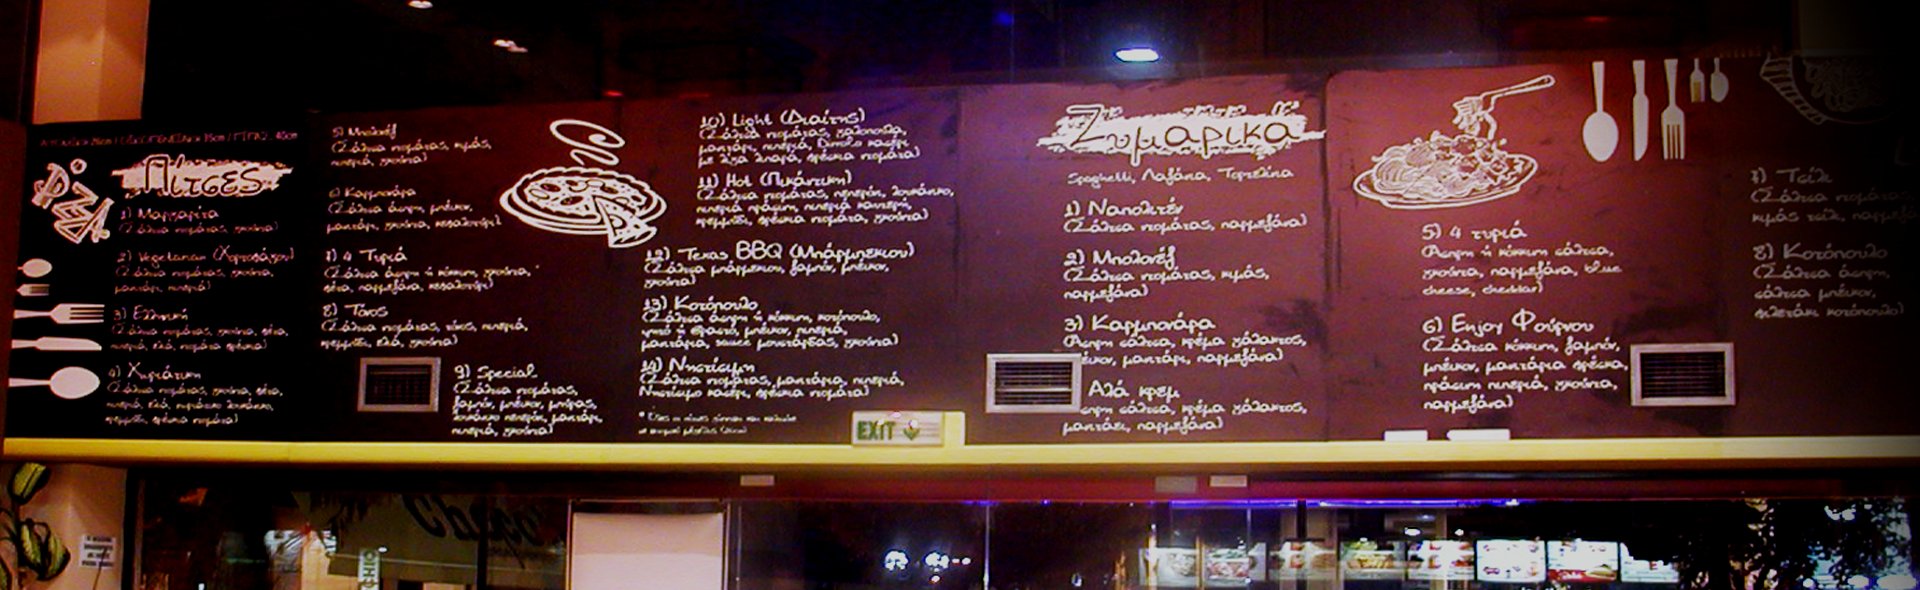 Πίτσες
1) Μαργαρίτα
(Σάλτσα ντομάτας, γκούντα)
2) Vegetarian (Χορτοφάγου)
(Σάλτσα ντομάτας, γκούντα,
μανιτάρι, πιπεριά)
3) Ελληνική
(Σάλτσα ντομάτας, γκούντα, φέτα,
πιπεριά, ελιά, ντομάτα φρέσκια)
4) Χωριάτικη
(Σάλτσα ντομάτας, γκούντα, φέτα,
πιπεριά, ελιά, χωριάτικο λουκάνικο,
κρεμμύδι, φρέσκια ντομάτα)
5) Μπολονέζ
(Σάλτσα ντομάτας, κιμάς,
πιπεριά, γκούντα)
6) Καρμπονάρα
(Σάλτσα άσπρη, μπέικον,
μανιτάρι, γκούντα, κεφαλοτύρι)
7) 4 Τυριά
(Σάλτσα άσπρη ή κόκκινη, γκούντα,
φέτα, παρμεζάνα, κεφαλοτύρι)
8) Τόνος
(Σάλτσα ντομάτας, τόνος, πιπεριά,
κρεμμύδι, ελιά, γκούντα)
9) Special
(Σάλτσα ντομάτας,
ζαμπόν, μπέικον, μπύρας,
λουκάνικο πεπερόνι, μανιτάρι,
πιπεριά, γκούντα)
10) Light (Διαίτης)
(Σάλτσα ντομάτας, γαλοπούλα,
μανιτάρι, πιπεριά, κασέρι
με λίγα λιπαρά, φρέσκια ντομάτα)
11) Hot (Πικάντικη)
(Σάλτσα ντομάτας, πεπερόνι, λουκάνικο,
πιπεριά πράσινη, πιπεριά καυτερή,
κρεμμύδι, φρέσκια ντομάτα, γκούντα)
12) Texas BBQ (Μπάρμπεκιου)
(Σάλτσα μπάρμπεκιου, ζαμπόν, μπέικον,
γκούντα)
13) Κοτόπουλο
(Σάλτσα άσπρη ή κόκκινη, κοτόπουλο,
ψητό ή βραστό, μπέικον, πιπεριά,
μανιτάρια, sauce μουστάρδας, γκούντα)
14) Νηστίσιμη
(Σάλτσα ντομάτας, μανιτάρια, πιπεριά,
Νηστίσιμο κασέρι, φρέσκια ντομάτα)
EXIT
Ζυμαρικα
Spaghetti, Λαζάνια, Τορτελίνια
1) Ναπολιτέν
(Σάλτσα ντομάτας, παρμεζάνα)
2) Μπολονέζ
(Σάλτσα ντομάτας, κιμάς,
παρμεζάνα)
3) Καρμπονάρα
(Άσπρη σάλτσα, κρέμα γάλακτος,
μπέικον, μανιτάρι, παρμεζάνα)
Αλά κρεμ
άσπρη σάλτσα, κρέμα γάλακτος,
μανιτάρι, παρμεζάνα)
5) 4 τυριά
(Άσπρη ή κόκκινη σάλτσα,
γκούντα, παρμεζάνα, blue
cheese, cheddar)
6) Enjoy Φούρνου
(Σάλτσα κόκκινη, ζαμπόν,
μπέικον, μανιτάρια φρέσκα,
πράσινη πιπεριά, γκούντα,
παρμεζάνα)
7) Τσίλι
(Σάλτσα ντομάτας
κιμάς τσίλι, παρμεζά
8) Κοτόπουλο
(Σάλτσα άσπρη,
σάλτσα μπέικον,
φιλετάκι κοτόπουλο)
Choco